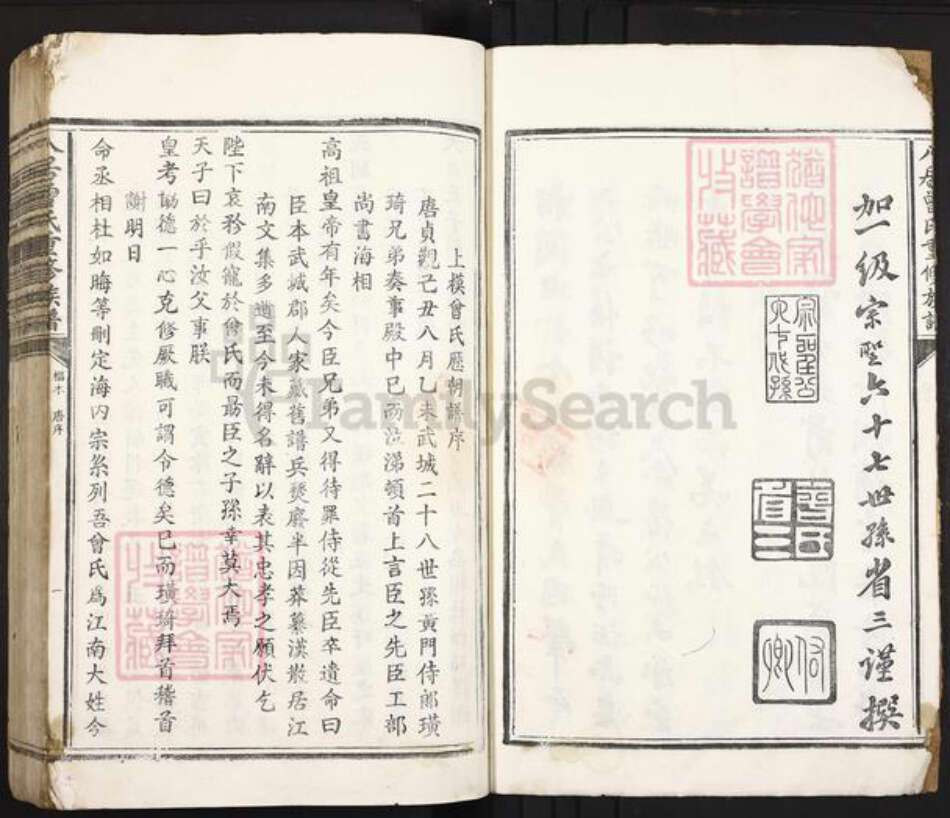 加一級宗聖六十七世孫省三謹撰
宗聖公
六十七代孫
曾省三
佑卿
猶他家
譜學會
收藏
上模曾氏歷朝譜序
唐貞觀己丑八月乙未武城二十八世孫黃門侍郎璜
琦兄弟奏事殿中已而泣涕頓首上言臣之先臣工部
尚書海相
高祖皇帝有年矣今臣兄弟又得待罪侍從先臣卒遺命曰
臣本武城郡人家藏舊譜兵燹靡半因莽纂漢散居江
南文集多遒至今未得名辭以表其忠孝之願伏乞
陛下哀矜假寵於曾氏而勗臣之子孫幸莫大焉
天子曰於乎汝父事朕
皇考協德一心克修厥職可謂令德矣已而璜琦拜首稽首
謝明日
命丞相杜如晦等刪定海內宗系列吾曾氏為江南大姓今
曾氏重修族譜
唐序
一
猶他家
譜學會
收藏
FamilySearch